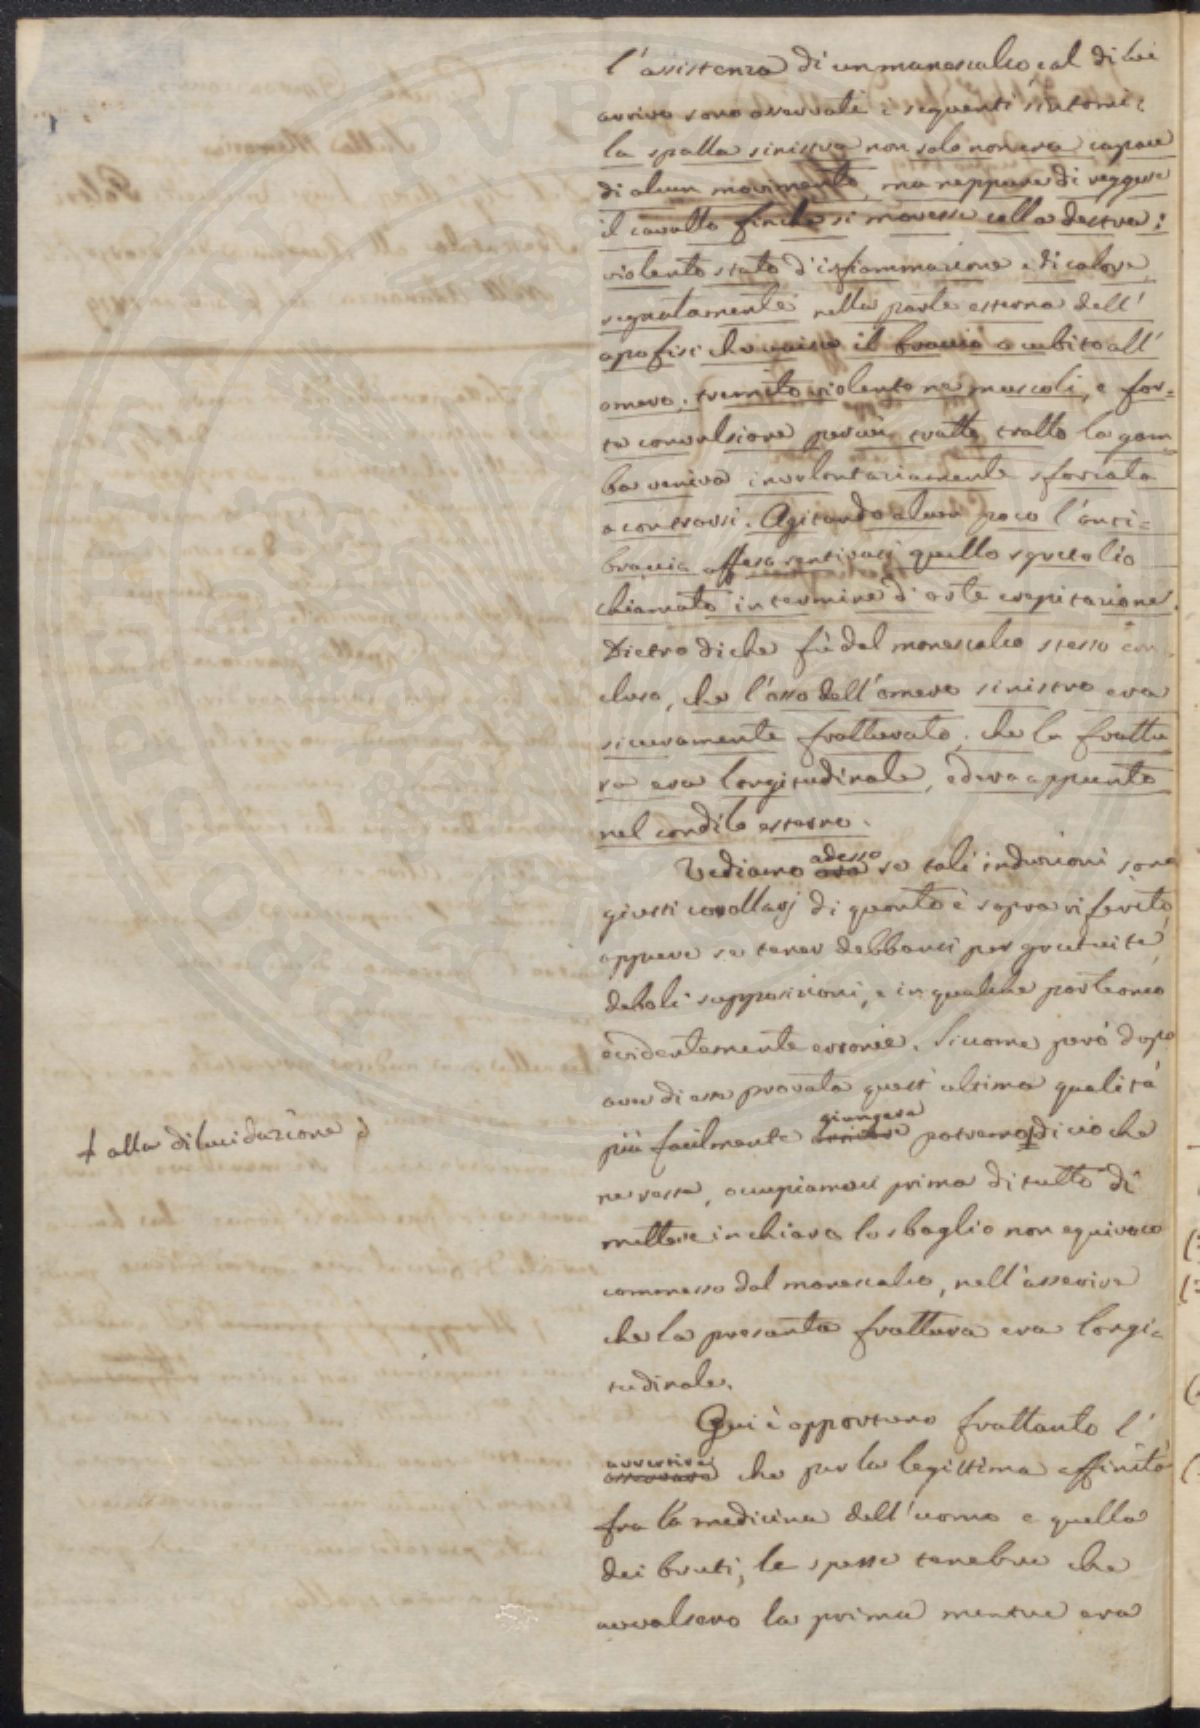 l'assistenza di un manescalco e al di lui
arrivo sono osservati i seguenti sintomi:
la spalla sinistra non solo non era capace
di alcun movimento, ma neppure di reggere
il cavallo finche si movesse colla destra:
violento stato d'infiammazione e di calore
segnatamente nella parte esterna dell'
apofisi che unisce il braccio o cubito all'
omero; tremito violento ne' muscoli, e for=
te convulsione percui tratto tratto la gam=
ba veniva involontariamente sforzata
a contrarsi. Agitando alcun poco l'anti=
braccio offeso sentivasi quello sgretolio
chiamato in termine d'arte crepitazione.
Dietro di che fù dal manescalco stesso con
cluso, che l'osso dell'omero sinistro era
sicuramente fratturato; che la frattu
ra era longitudinale, ed era appunto
nel condilo esterno.
Vediamo ora adesso se tali induzioni sono
giusti corollarj di quanto è sopra riferito,
oppure se tener debbansi per gratuite,
deboli supposizioni, e in qualche parte anco
evidentemente erronie. Siccome però dopo
aver di esse provata quest'ultima qualità
più facilmente arrivare giungere potremo ‡ di ciò che
ne resta, occupiamoci prima di tutto di
‡ alla dilucidazione
mettere in chiaro lo sbaglio non equivoco
commesso dal manescalco, nell'asserire
che la presente frattura era longi=
tudinale.
Qui è opportuno frattanto l'
osservare avvertire che per la legittima affinità
fra la medicina dell'uomo e quella
dei bruti, le spesse tenebre che
avvolsero la prima mentre era